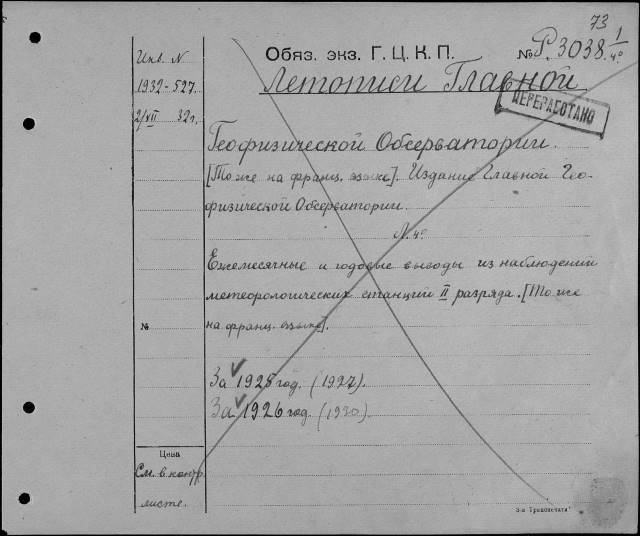 73
Обяз. экз. Г. Ц. К. П.
№ Р. 3038 1/4º
Инв. N
1932-527.
2/VII 32 г.
Летописи Главной
ПЕРЕРАБОТАНО
Геофизической Обсерватории.
[То же на франц. языке]. Издание Главной Гео-
физической Обсерватории.
Л. 4º
Ежемесячные и годовые выводы из наблюдений
метеорологических станций II разряда. [То же
на франц. языке].
№
За 1925 год. (1927).
За 1926 год. (1930).
Цена
См. в контр.
листе.
3-я Транспечати